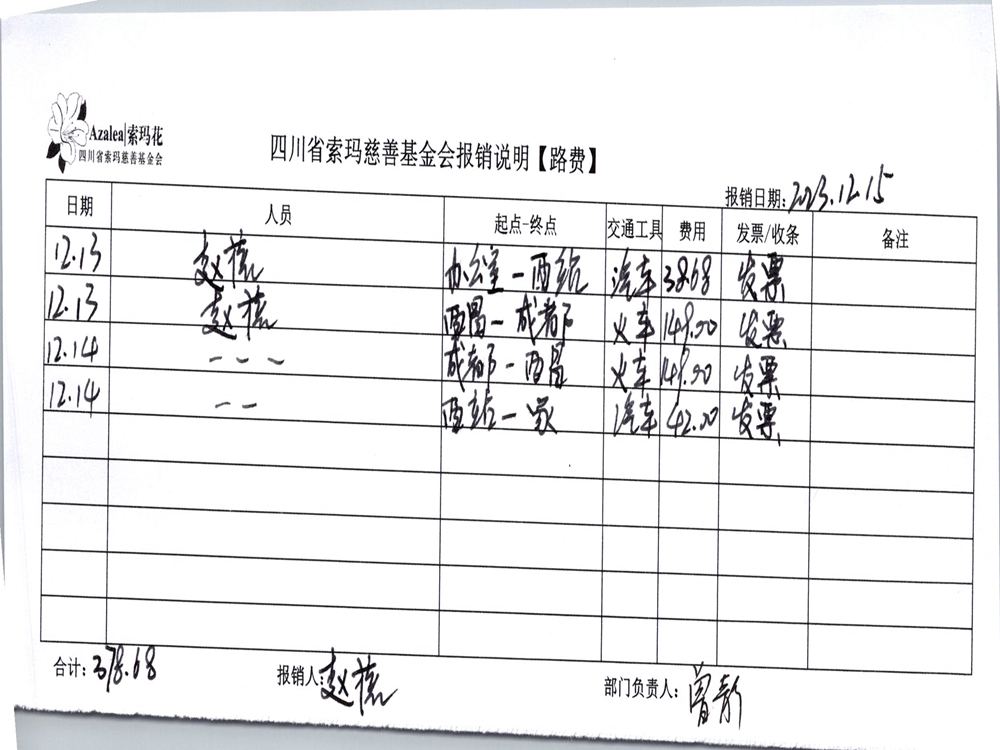 Azalea|索玛花
四川省索玛慈善基金会
四川省索玛慈善基金会报销说明【路费】
报销日期:2023.12.15
日期 人员 起点-终点 交通工具 费用 发票/收条 备注
12.13 赵 办公室-西站 汽车 38.68 发票
12.13 赵 西昌-成都 火车 149.00 发票
12.14 ~ ~ ~ 成都-西昌 火车 149.00 发票
12.14 ~ ~ 西站-家 汽车 42.00 发票
合计:378.68 报销人:赵 部门负责人:曾